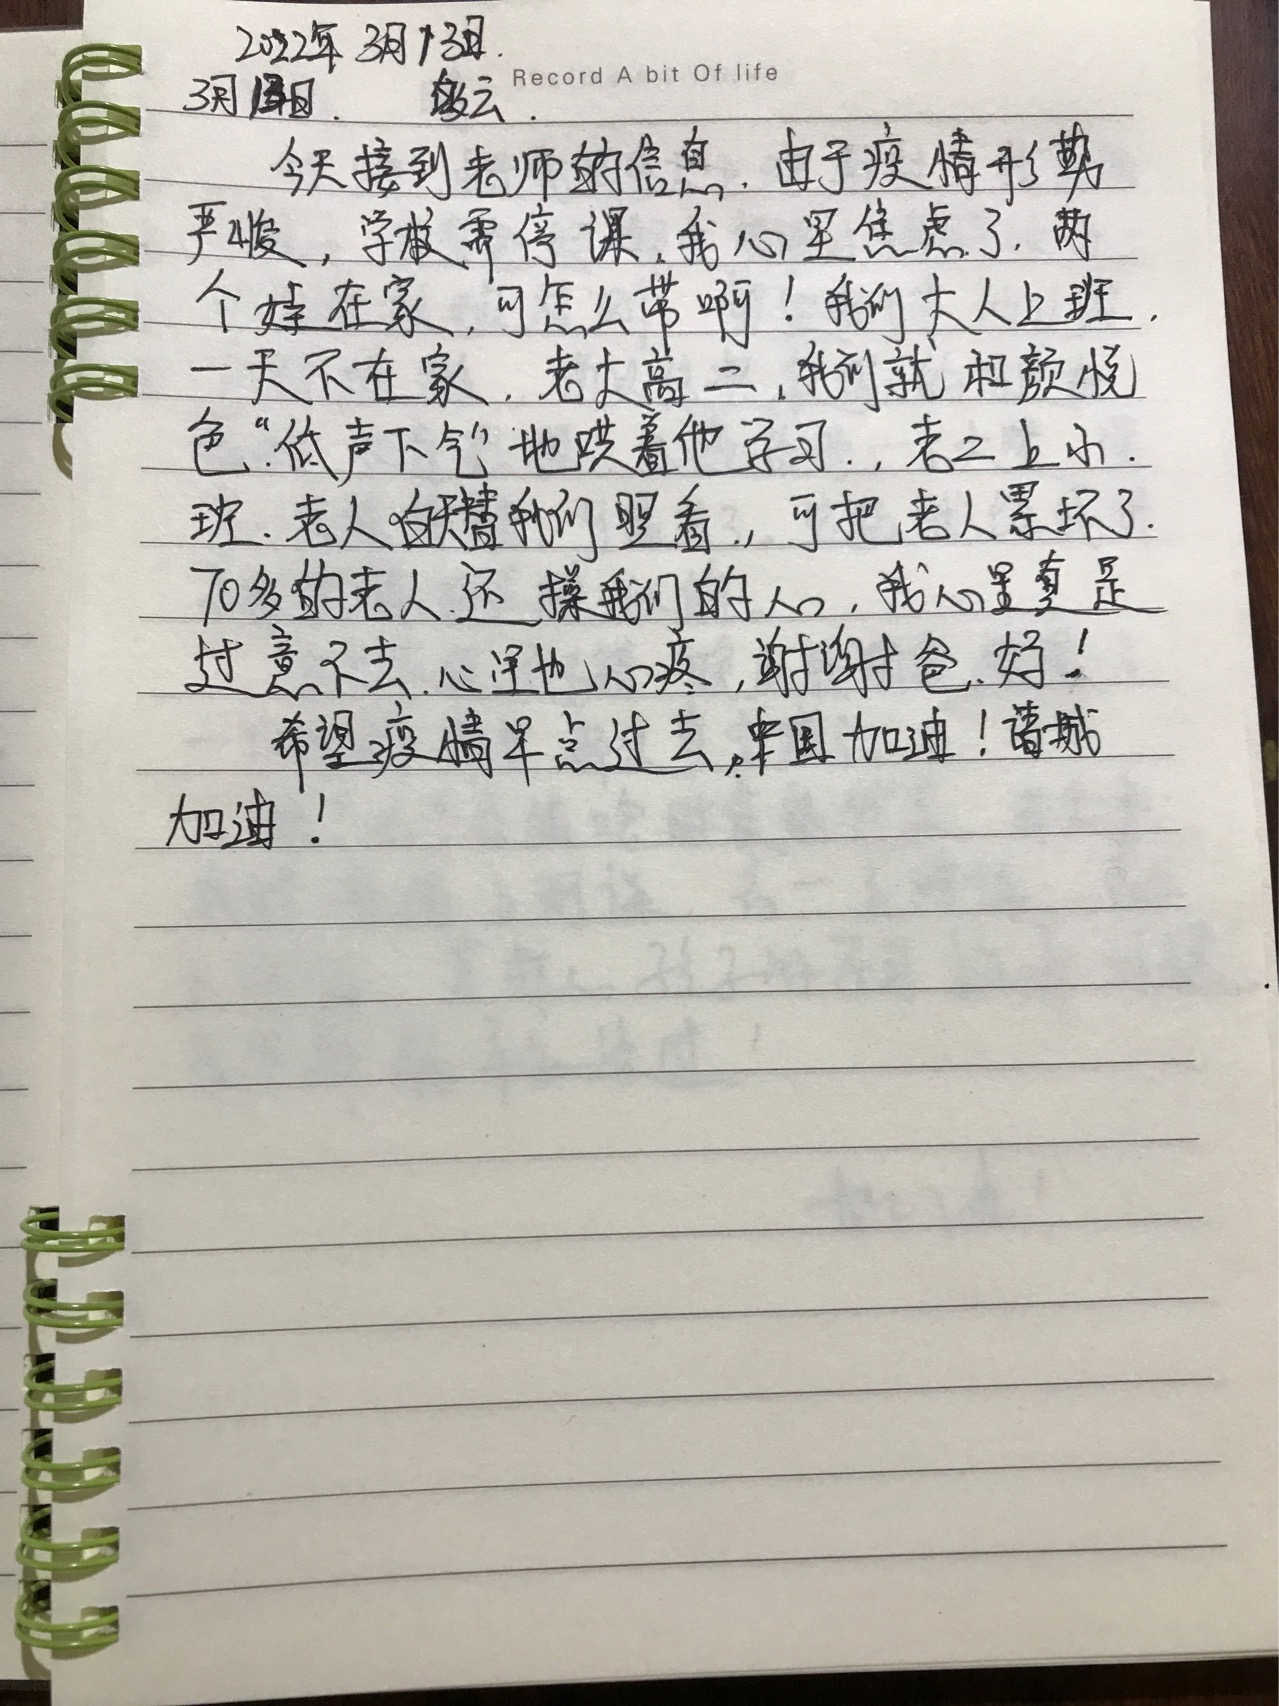 2022年3月13日.
Record A bit Of life
3月13日. 多云.
今天接到老师的信息.由于疫情形势
严峻,学校需停课,我心里焦虑了.两
个娃在家,可怎么带啊!我们大人上班.
一天不在家.老大高二,我们就和颜悦
色“低声下气”地哄着他学习.,老二上小.
班.老人白天替我们照看.,可把老人累坏了.
70多的老人.还操我们的心,我心里真是
过意不去.心里也心疼,谢谢爸.妈!
希望疫情早点过去.中国加油!诸城
加油!